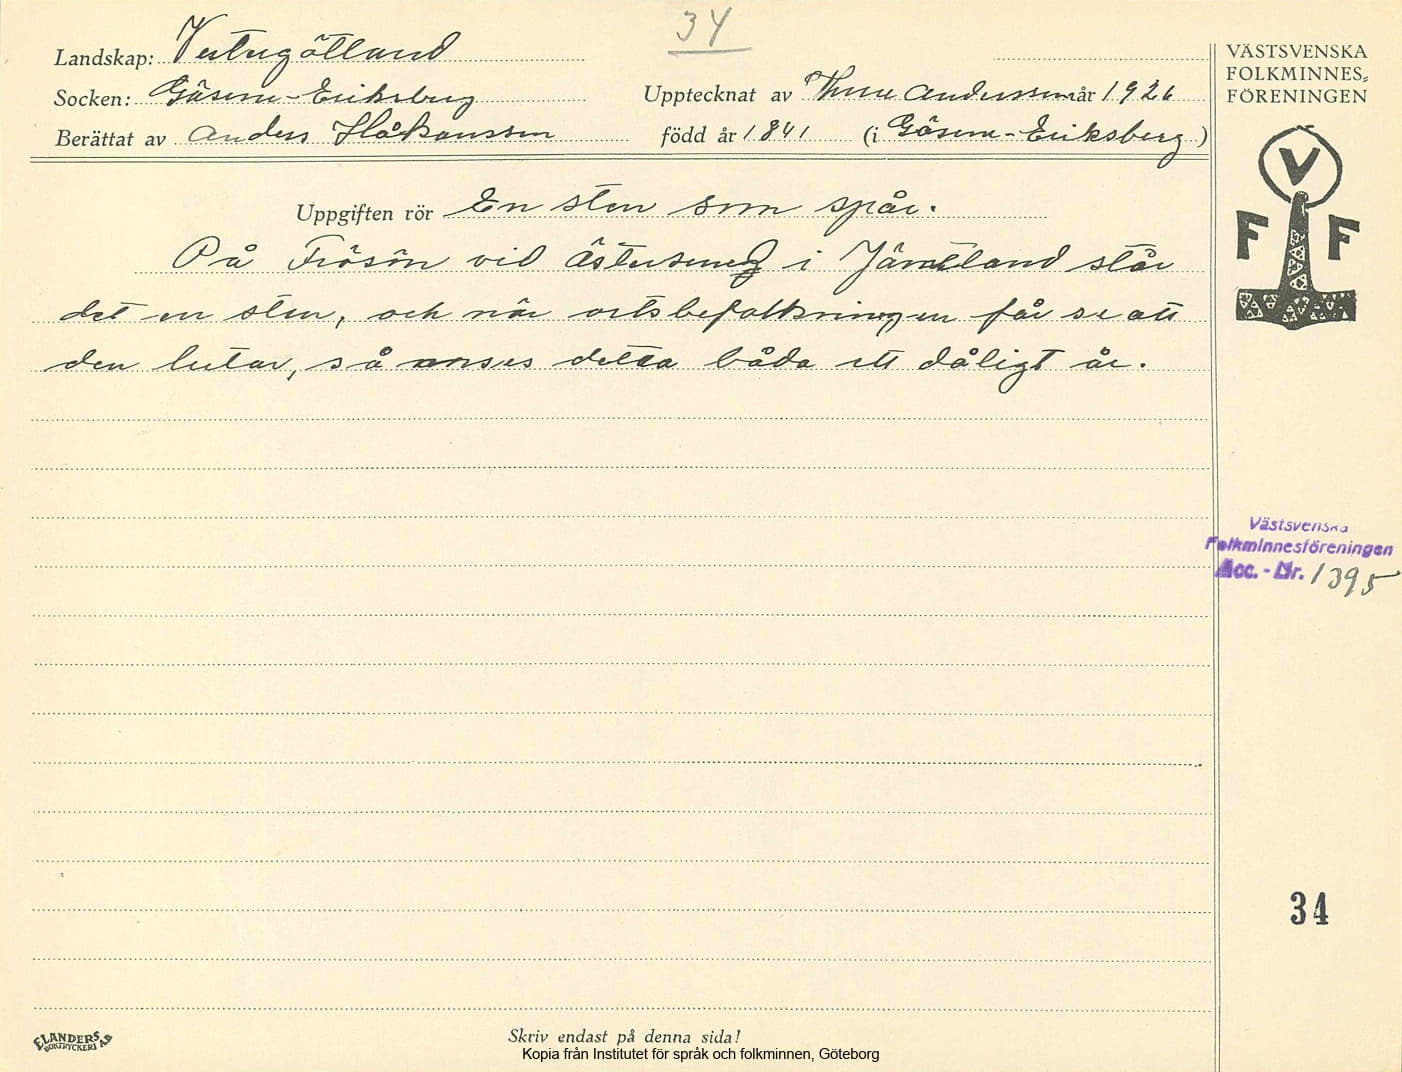 34
Landskap: Vestergötland
Socken: Gäsene-Eriksberg
Upptecknat av Thure Andersson år 1926
Berättat av Anders Håkansson född år 1841 (i Gäsene-Eriksberg)
Uppgiften rör En sten som spår.
På Frösön vid Östersund i Jämtland står
det en sten, och när ortsbefolkningen får se att
den lutar, så anses detta båda ett dåligt år.
VÄSTSVENSKA
FOLKMINNES-
FÖRENINGEN
V
F F
Västsvenska
Folkminnesföreningen
Acc. - Nr. 1395
34
ELANDERS
BOKTRYCKERI AB
Skriv endast på denna sida!
Kopia från Institutet för språk och folkminnen, Göteborg